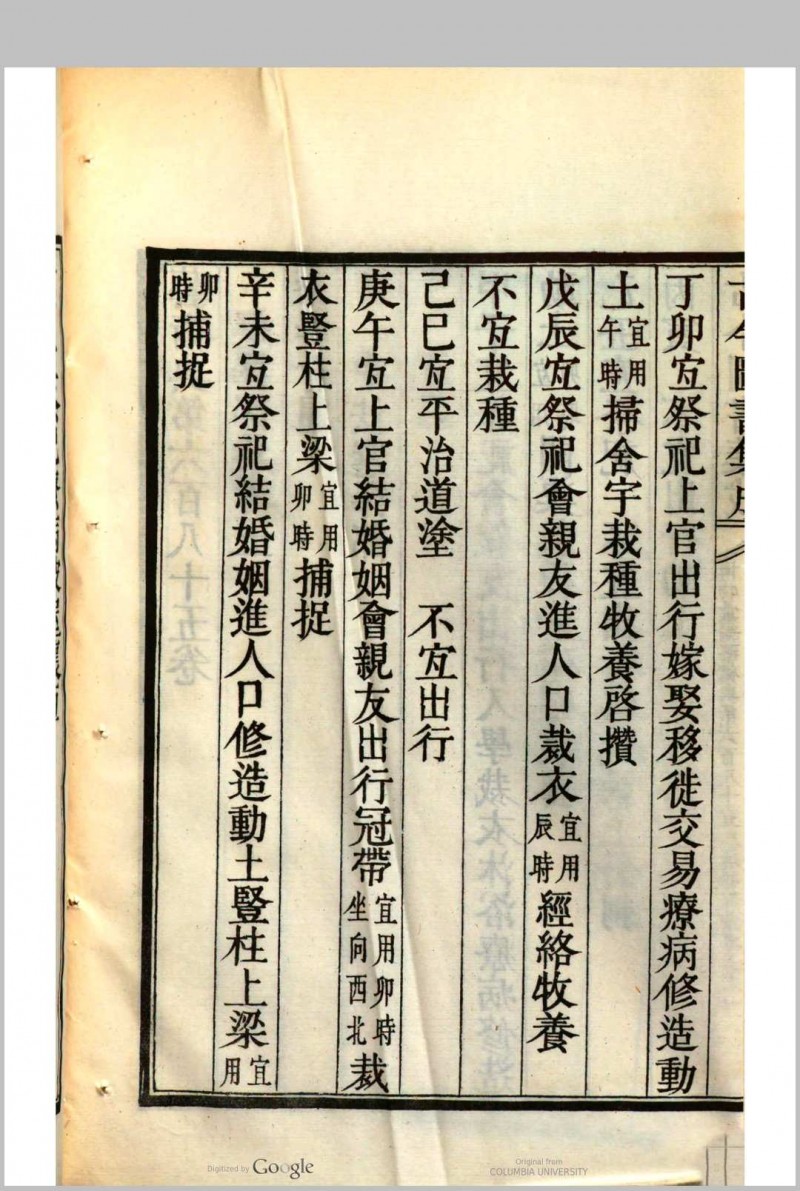 古今圖書集成
丁卯宜祭祀上官出行嫁娶移徙交易療病修造動
土宜用午時掃舍宇栽種牧養啓攢
戊辰宜祭祀會親友進人口裁衣宜用辰時經絡牧養
不宜栽種
己巳宜平治道塗　不宜出行
庚午宜上官結婚姻會親友出行冠帶宜用卯時坐向西北裁
衣豎柱上梁宜用卯時捕捉
辛未宜祭祀結婚姻進人口修造動土豎柱上梁宜用
卯時捕捉
Digitized by Google
Original from
COLUMBIA UNIVERSITY